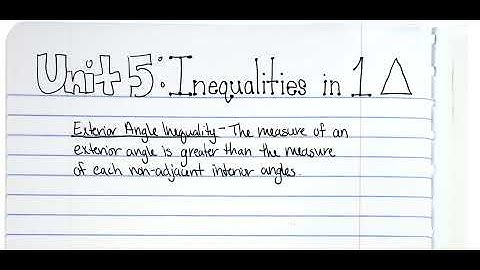 Unit 5: Inequalities in 1 △
Exterior Angle Inequality - The measure of an
exterior angle is greater than the measure
of each non-adjacent interior angles.